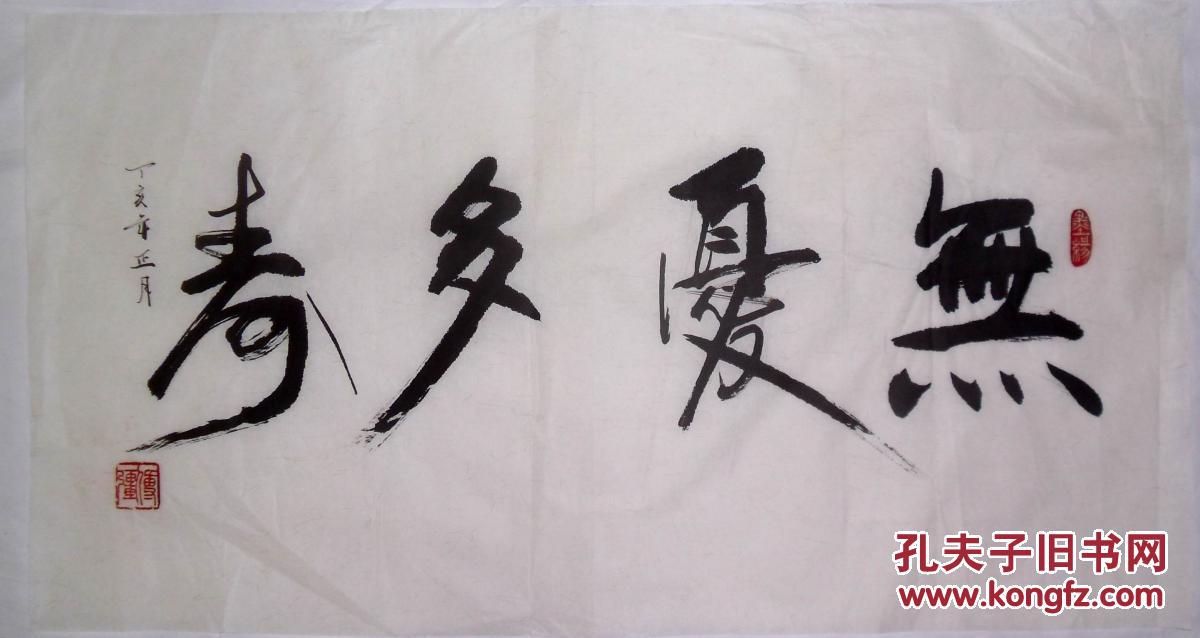 無憂多寿
丁亥年正月
孔夫子旧书网
www.kongfz.com